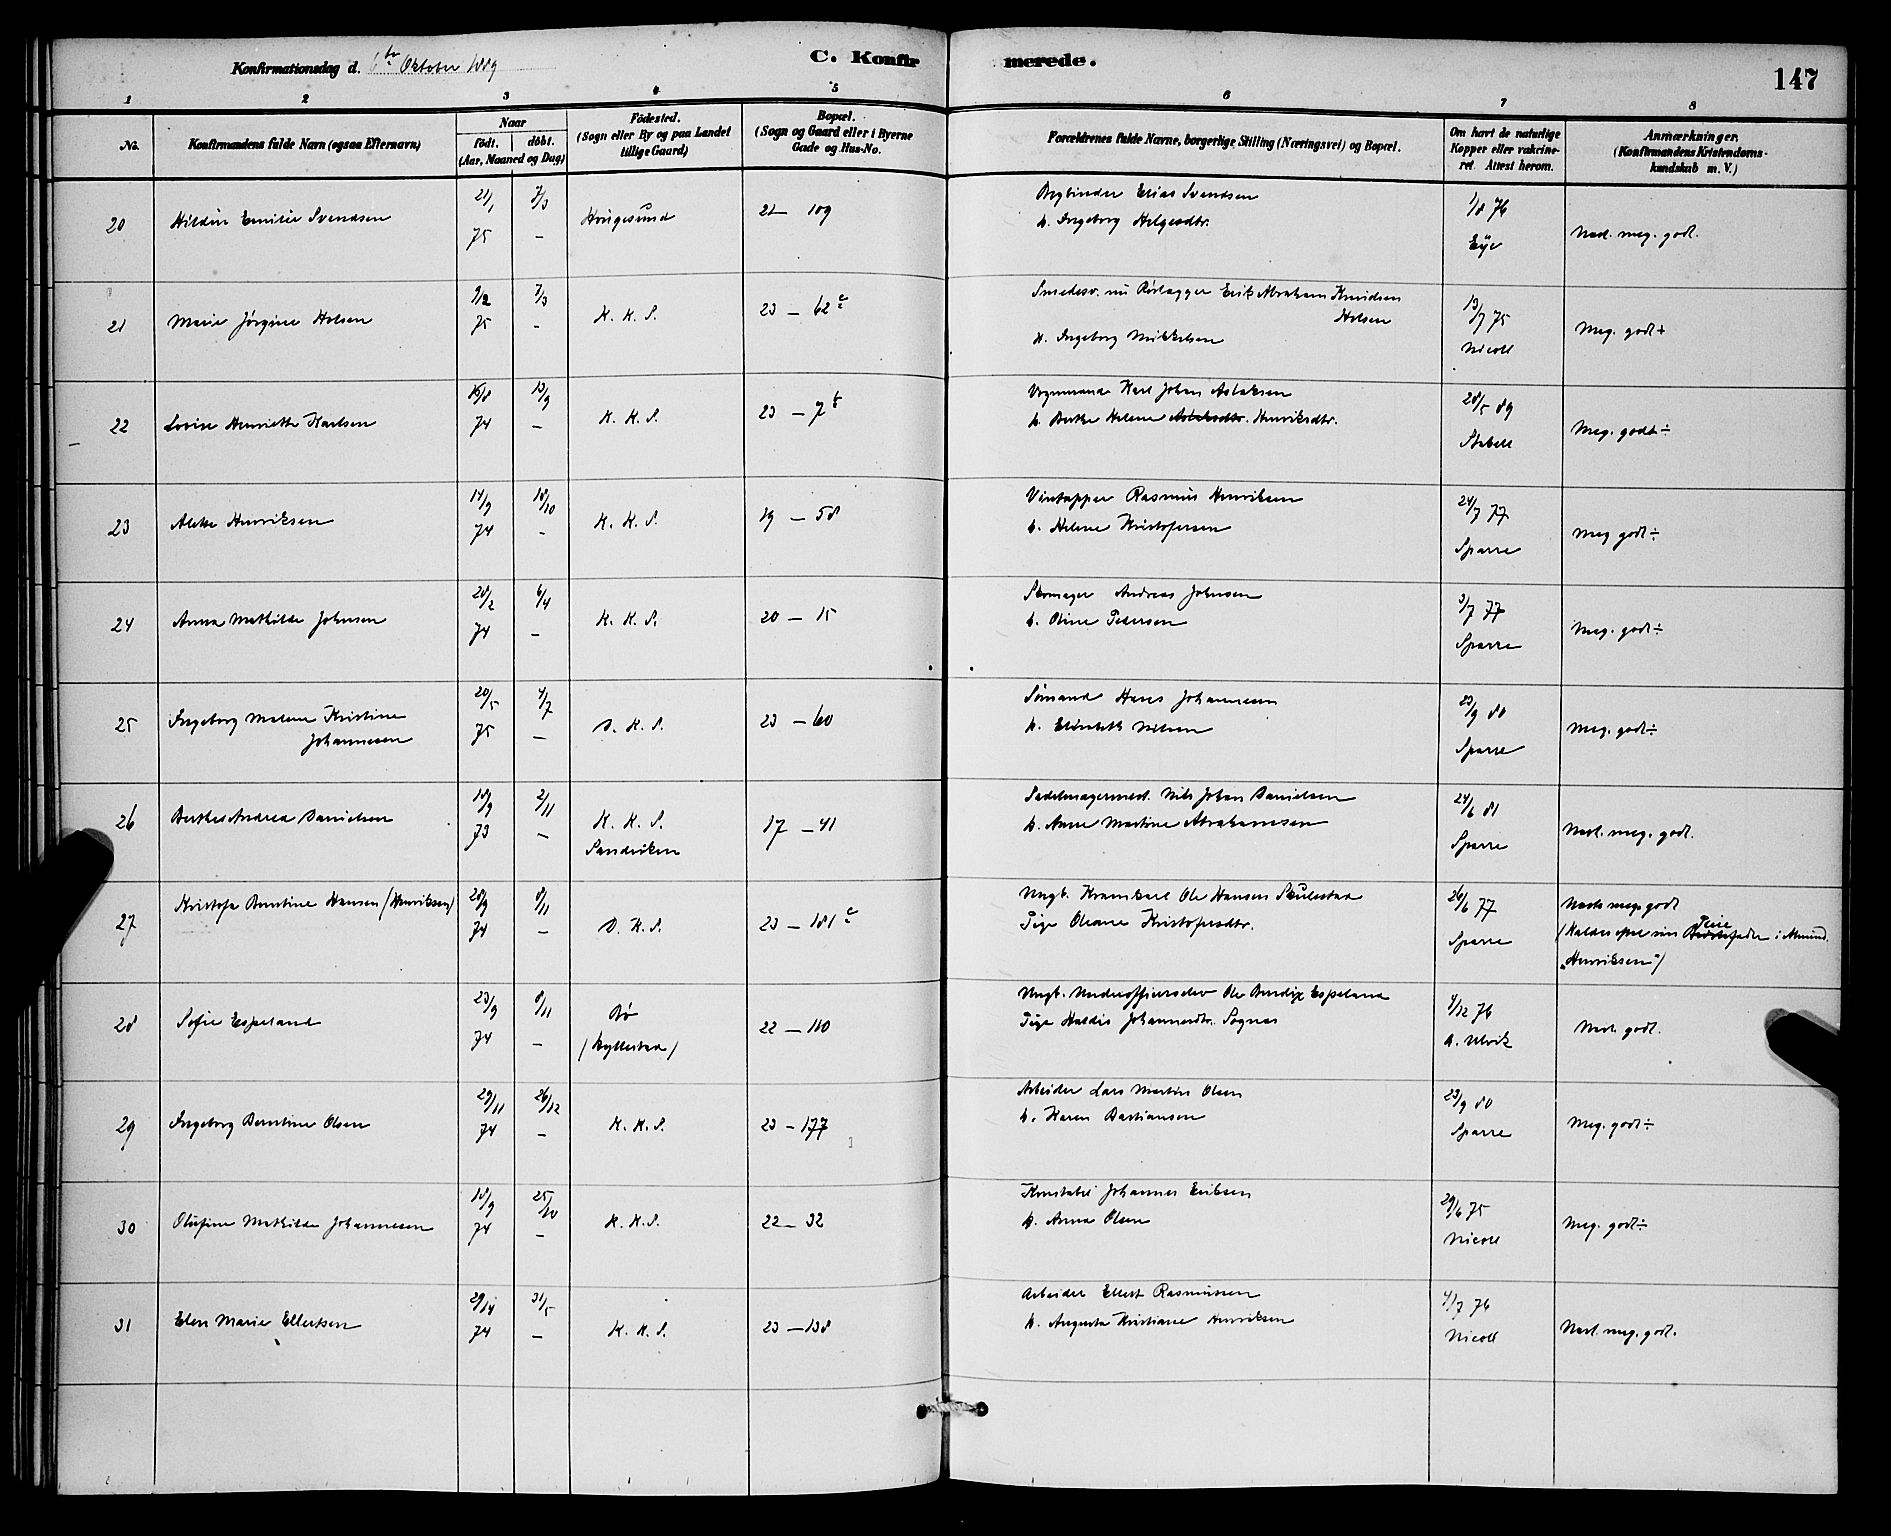 Konfirmationsdag d. 6te Oktober 1889
C. Konfirmerede.
147
1 2 3 4 5 6 7 8
No.
Konfirmandens fulde Navn (ogsaa Efternavn)
Naar
födt. döbt.
(Aar, Maaned og Dag)
Födested.
(Sogn eller By og paa Landet
tillige Gaard)
Bopæl.
(Sogn og Gaard eller i Byerne
Gade og Hus-No.
Forældrenes fulde Navne, borgerlige Stilling (Næringsvei) og Bopæl.
Om havt de naturlige
Kopper eller vakcine-
ret. Attest herom.
Anmærkninger.
(Konfirmandens Kristendoms-
kundskab m. V.)
20 Hilda Emilie Svendsen 21/1 75 7/3 – Haugesund 21 – 109
Bogbinder Elias Svendsen
h. Ingeborg Helgesdtr.
1/8 76
Eye
Næst. meg. godt.
21 Marie Jørgine Holsen 9/2 75 7/3 – K. K. S. 23 – 62 c
Smedesv. nu Rørlægger Erik Abraham Knudsen
Holsen
h. Ingeborg Mikkelsen
13/7 75
Nicoll
Meg. godt +
22 Lovise Henriette Karlsen 16/8 74 13/9 – K. K. S. 23 – 7 b
Vognmand Karl Johan Aslaksen
h. Berthe Helene Aslaksdtr. Henriksdtr.
28/5 89
Stabell
Meg. godt ÷
23 Aletta Henriksen 14/9 74 18/10 – K. K. S. 19 – 58
Vintapper Rasmus Henriksen
h. Helene Kristofersen
24/7 77
Sparre
Meg godt ÷
24 Anna Mathilde Johnsen 28/2 74 6/4 – K. K. S. 20 – 15
Skomager Andreas Johnsen
h. Oline Pedersen
3/7 77
Sparre
Meg. godt ÷
25 Ingeborg Malene Kristine
Johannesen
20/5 75 4/7 – D. K. S. 23 – 60
Sømand Hans Johannesen
h. Elisabeth Nilsen
23/9 80
Sparre
Meg. godt ÷
26 Berthe Andrea Danielsen 18/9 73 2/11 – K. K. S.
Sandviken
17 – 41
Sadelmagermest. Nils Johan Danielsen
h. Anne Martine Abrahamsen
24/6 81
Sparre
Næst. meg. godt.
27 Kristofa Berntine Hansen (Henriksen) 28/9 74 8/11 – D. K. S. 23 – 181 c
Ungk. Kramkarl Ole Hansen Skulestad
Pige Oleane Kristofersdtr.
26/6 77
Sparre
Næst meg. godt
(Kaldes efter sin Pleiefader i Almind.
"Henriksen")
28 Sofie Espeland 23/9 74 8/11 – Bø
(Hyllestad)
22 – 110
Ungk. Underofficerselev Ole Bendix Espeland
Pige Haldis Johannesdtr. Sognes
4/12 76
A. Ulvik
Næst. godt.
29 Ingeborg Berntine Olsen 29/11 74 26/12 – K. K. S. 23 – 177
Arbeider Lars Martin Olsen
h. Karen Bastiansen
23/9 80
Sparre
Meg. godt ÷
30 Olufine Mathilde Johannesen 18/9 74 25/10 – K. K. S. 22 – 32
Konstabel Johannes Eriksen
h. Anna Olsen
29/6 75
Nicoll
Meg. godt ÷
31 Elen Marie Ellertsen 29/14 74 31/5 – K. K. S. 23 – 138
Arbeider Ellert Rasmussen
h. Augusta Kristiane Henriksen
4/7 76
Nicoll
Næst. meg. godt.